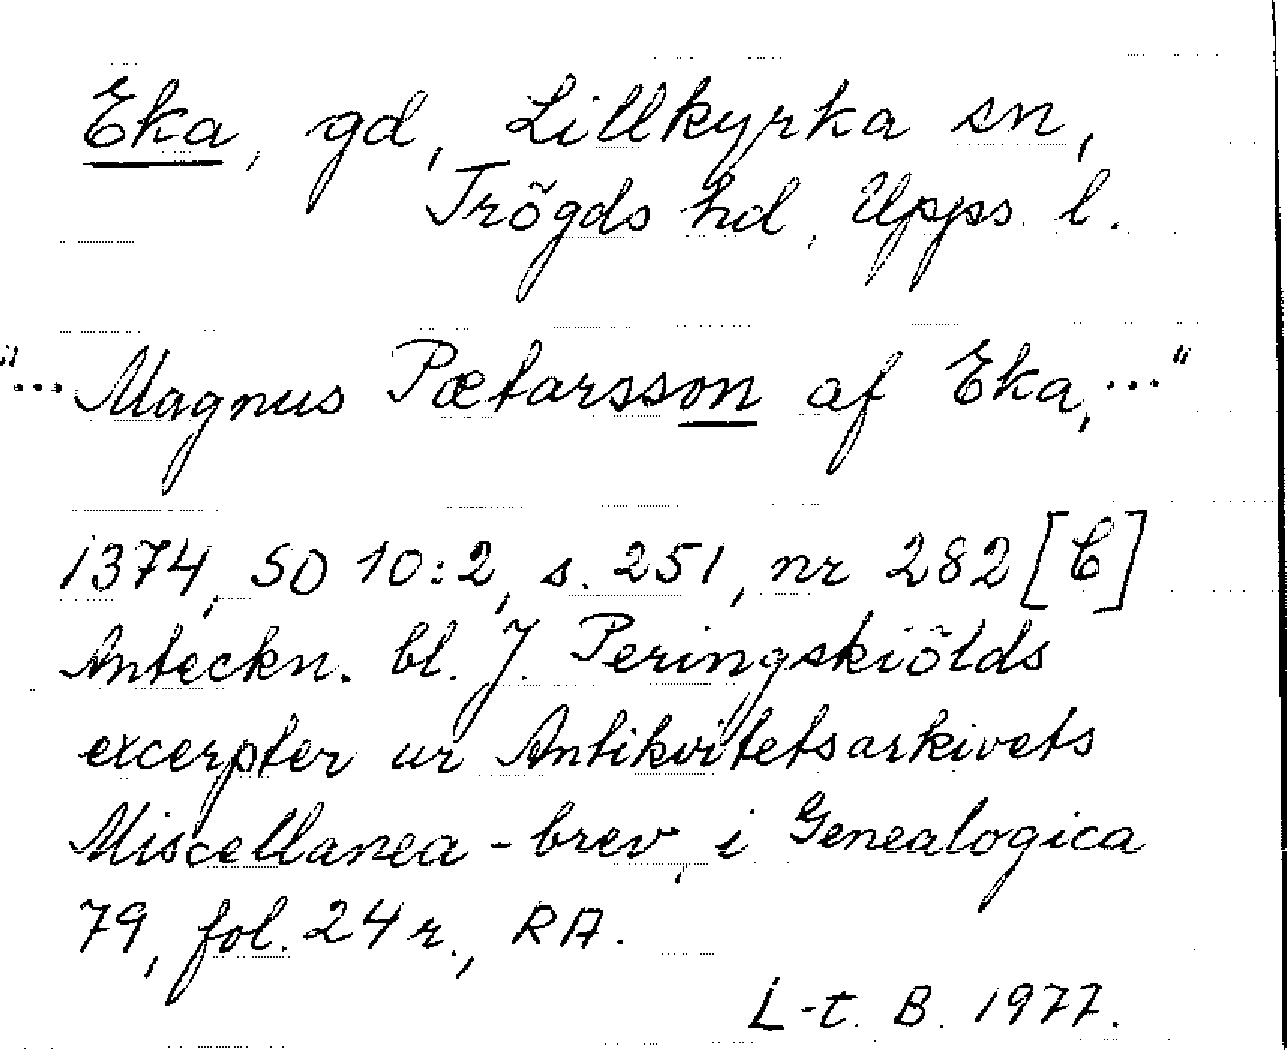 Eka, gd, Lillkyrka sn,
Trögds hd, Upps. l.
"... Magnus Pætarsson af Eka, ..."
1374, SD 10:2, s. 251, nr 282 [C]
Anteckn. bl. J. Peringskiölds
excerpter ur Antikvitetsarkivets
Miscellanea-brev, i Genealogica
79, fol. 24 r., RA.
L-t. B. 1977.